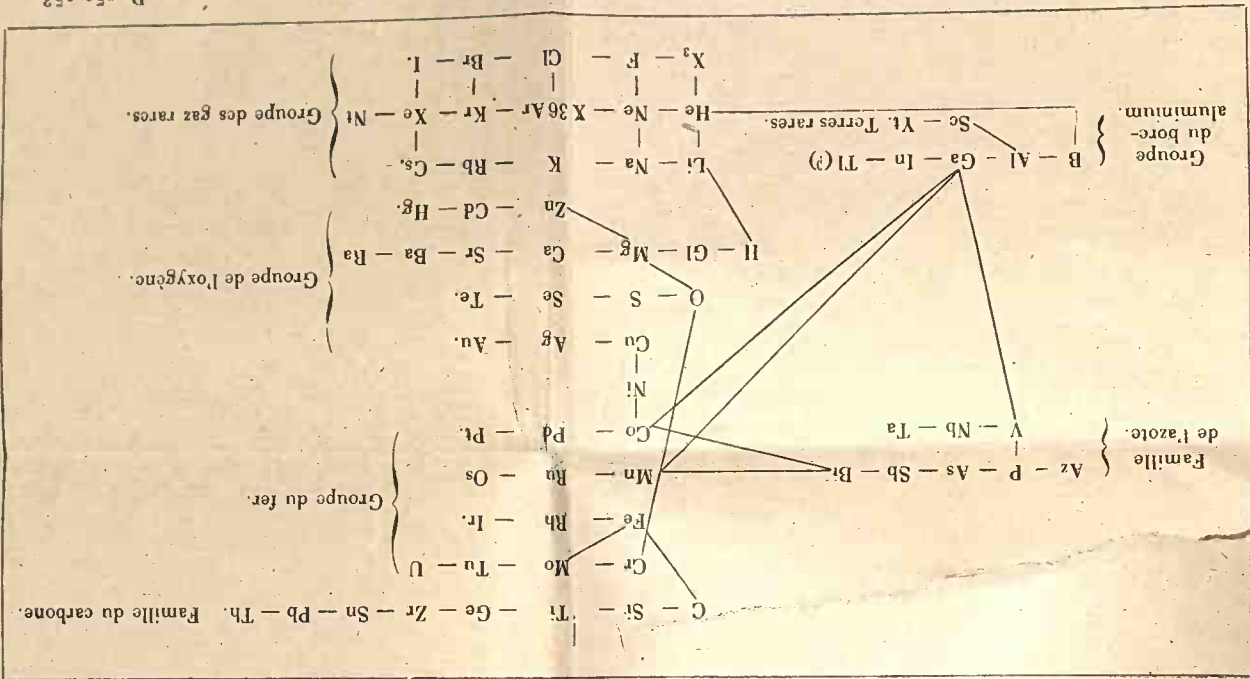 C — Si — Ti — Ge — Zr — Sn — Pb — Th. Famille du carbone.
Cr — Mo — Tu — U
Fe — Rh — Ir.
Mn — Ru — Os
Co — Pd — Pt.
Groupe du fer.
Famille de l'azote.
Az - P — As — Sb — Bi
V — Nb — Ta
Ni
Cu — Ag — Au.
O — S — Se — Te.
H — Gl — Mg — Ca — Sr — Ba — Ra
Zn — Cd — Hg.
Groupe de l'oxygène.
Groupe du bore-aluminium.
B — Al - Ga — In — Tl (?)
Sc — Yt. Terres rares.
Li — Na — K — Rb — Cs.
He — Ne — X 36 Ar — Kr — Xe — Nt
X₃ — F — Cl — Br — I.
Groupe des gaz rares.